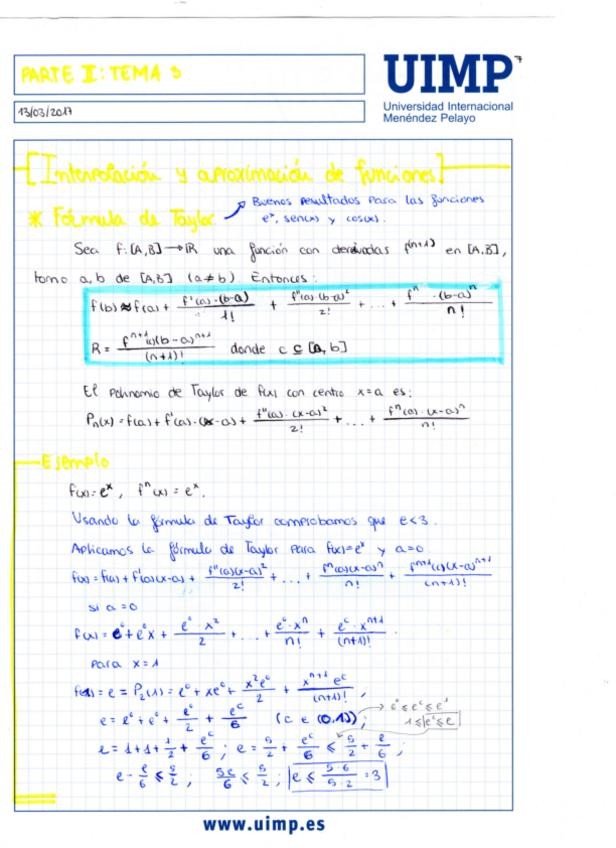 PARTE II: TEMA 5
UIMP 7
13/03/2017
Universidad Internacional
Menéndez Pelayo
[Interpolación y aproximación de funciones]
Buenos resultados para las funciones
* Fórmula de Taylor eˣ, sen(x) y cos(x).
Sea f: [A,B] → ℝ una función con derivadas f⁽ⁿ⁺¹⁾ en [A,B],
tomo a,b de [A,B] (a≠b) Entonces:
f(b) ≈ f(a) + f'(a)·(b-a)/1! + f''(a)·(b-a)²/2! + ... + fⁿ·(b-a)ⁿ/n!
R = fⁿ⁺¹(c)(b-a)ⁿ⁺¹/(n+1)! donde c ⊆ [a, b]
El Polinomio de Taylor de f(x) con centro x=a es:
Pₙ(x) = f(a) + f'(a)·(x-a) + f''(a)·(x-a)²/2! + ... + fⁿ(a)·(x-a)ⁿ/n!
Ejemplo
f(x) = eˣ, fⁿ(x) = eˣ.
Usando la fórmula de Taylor comprobamos que e<3.
Aplicamos la fórmula de Taylor para f(x)=eˣ y a=0
f(x) = f(a) + f'(a)(x-a) + f''(a)(x-a)²/2! + ... + fⁿ(a)(x-a)ⁿ/n! + fⁿ⁺¹(c)(x-a)ⁿ⁺¹/(n+1)!
si a=0
f(x) = e⁰ + e⁰x + e⁰·x²/2 + ... + e⁰·xⁿ/n! + eᶜ·xⁿ⁺¹/(n+1)!
para x=1
f(1) = e = P₂(1) = e⁰ + xe⁰ + x²e⁰/2 + xⁿ⁺¹eᶜ/(n+1)!,
e = e⁰ + e⁰ + e⁰/2 + eᶜ/6 (c ∈ (0,1)); → e⁰ ≤ eᶜ ≤ e¹
1 ≤ eᶜ ≤ e
e = 1+1+1/2 + eᶜ/6; e = 5/2 + eᶜ/6 ≤ 5/2 + e/6;
e - e/6 ≤ 5/2; 5e/6 ≤ 5/2; e ≤ 5·6/5·2 = 3
www.uimp.es